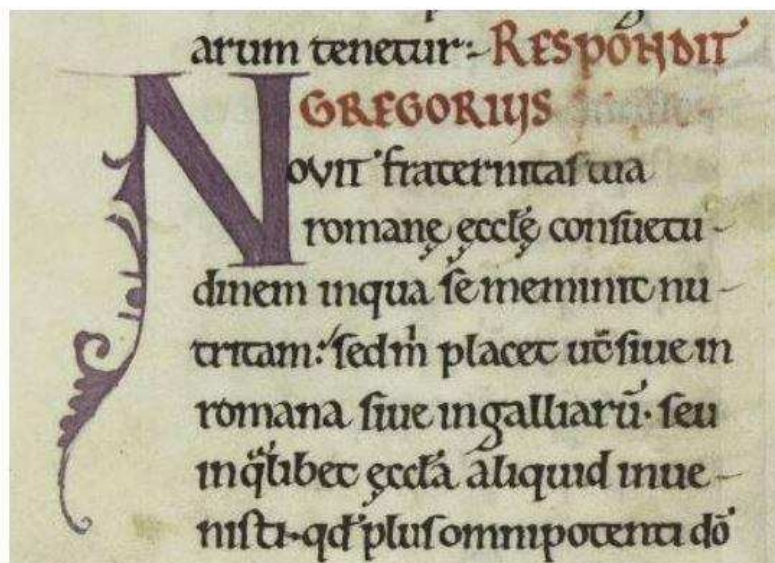 arum tenetur:- RESPONDIT
GREGORIUS
NOVIT fraternitas tua
romanę ęcclę̄ consuetu-
dinem inqua se meminit nu-
tritam: sed m̄ placet ut siue in
romana siue ingalliarū. seu
inq̄libet ęcclā aliquid inue-
nisti. qd̄ plus omnipotenti dō